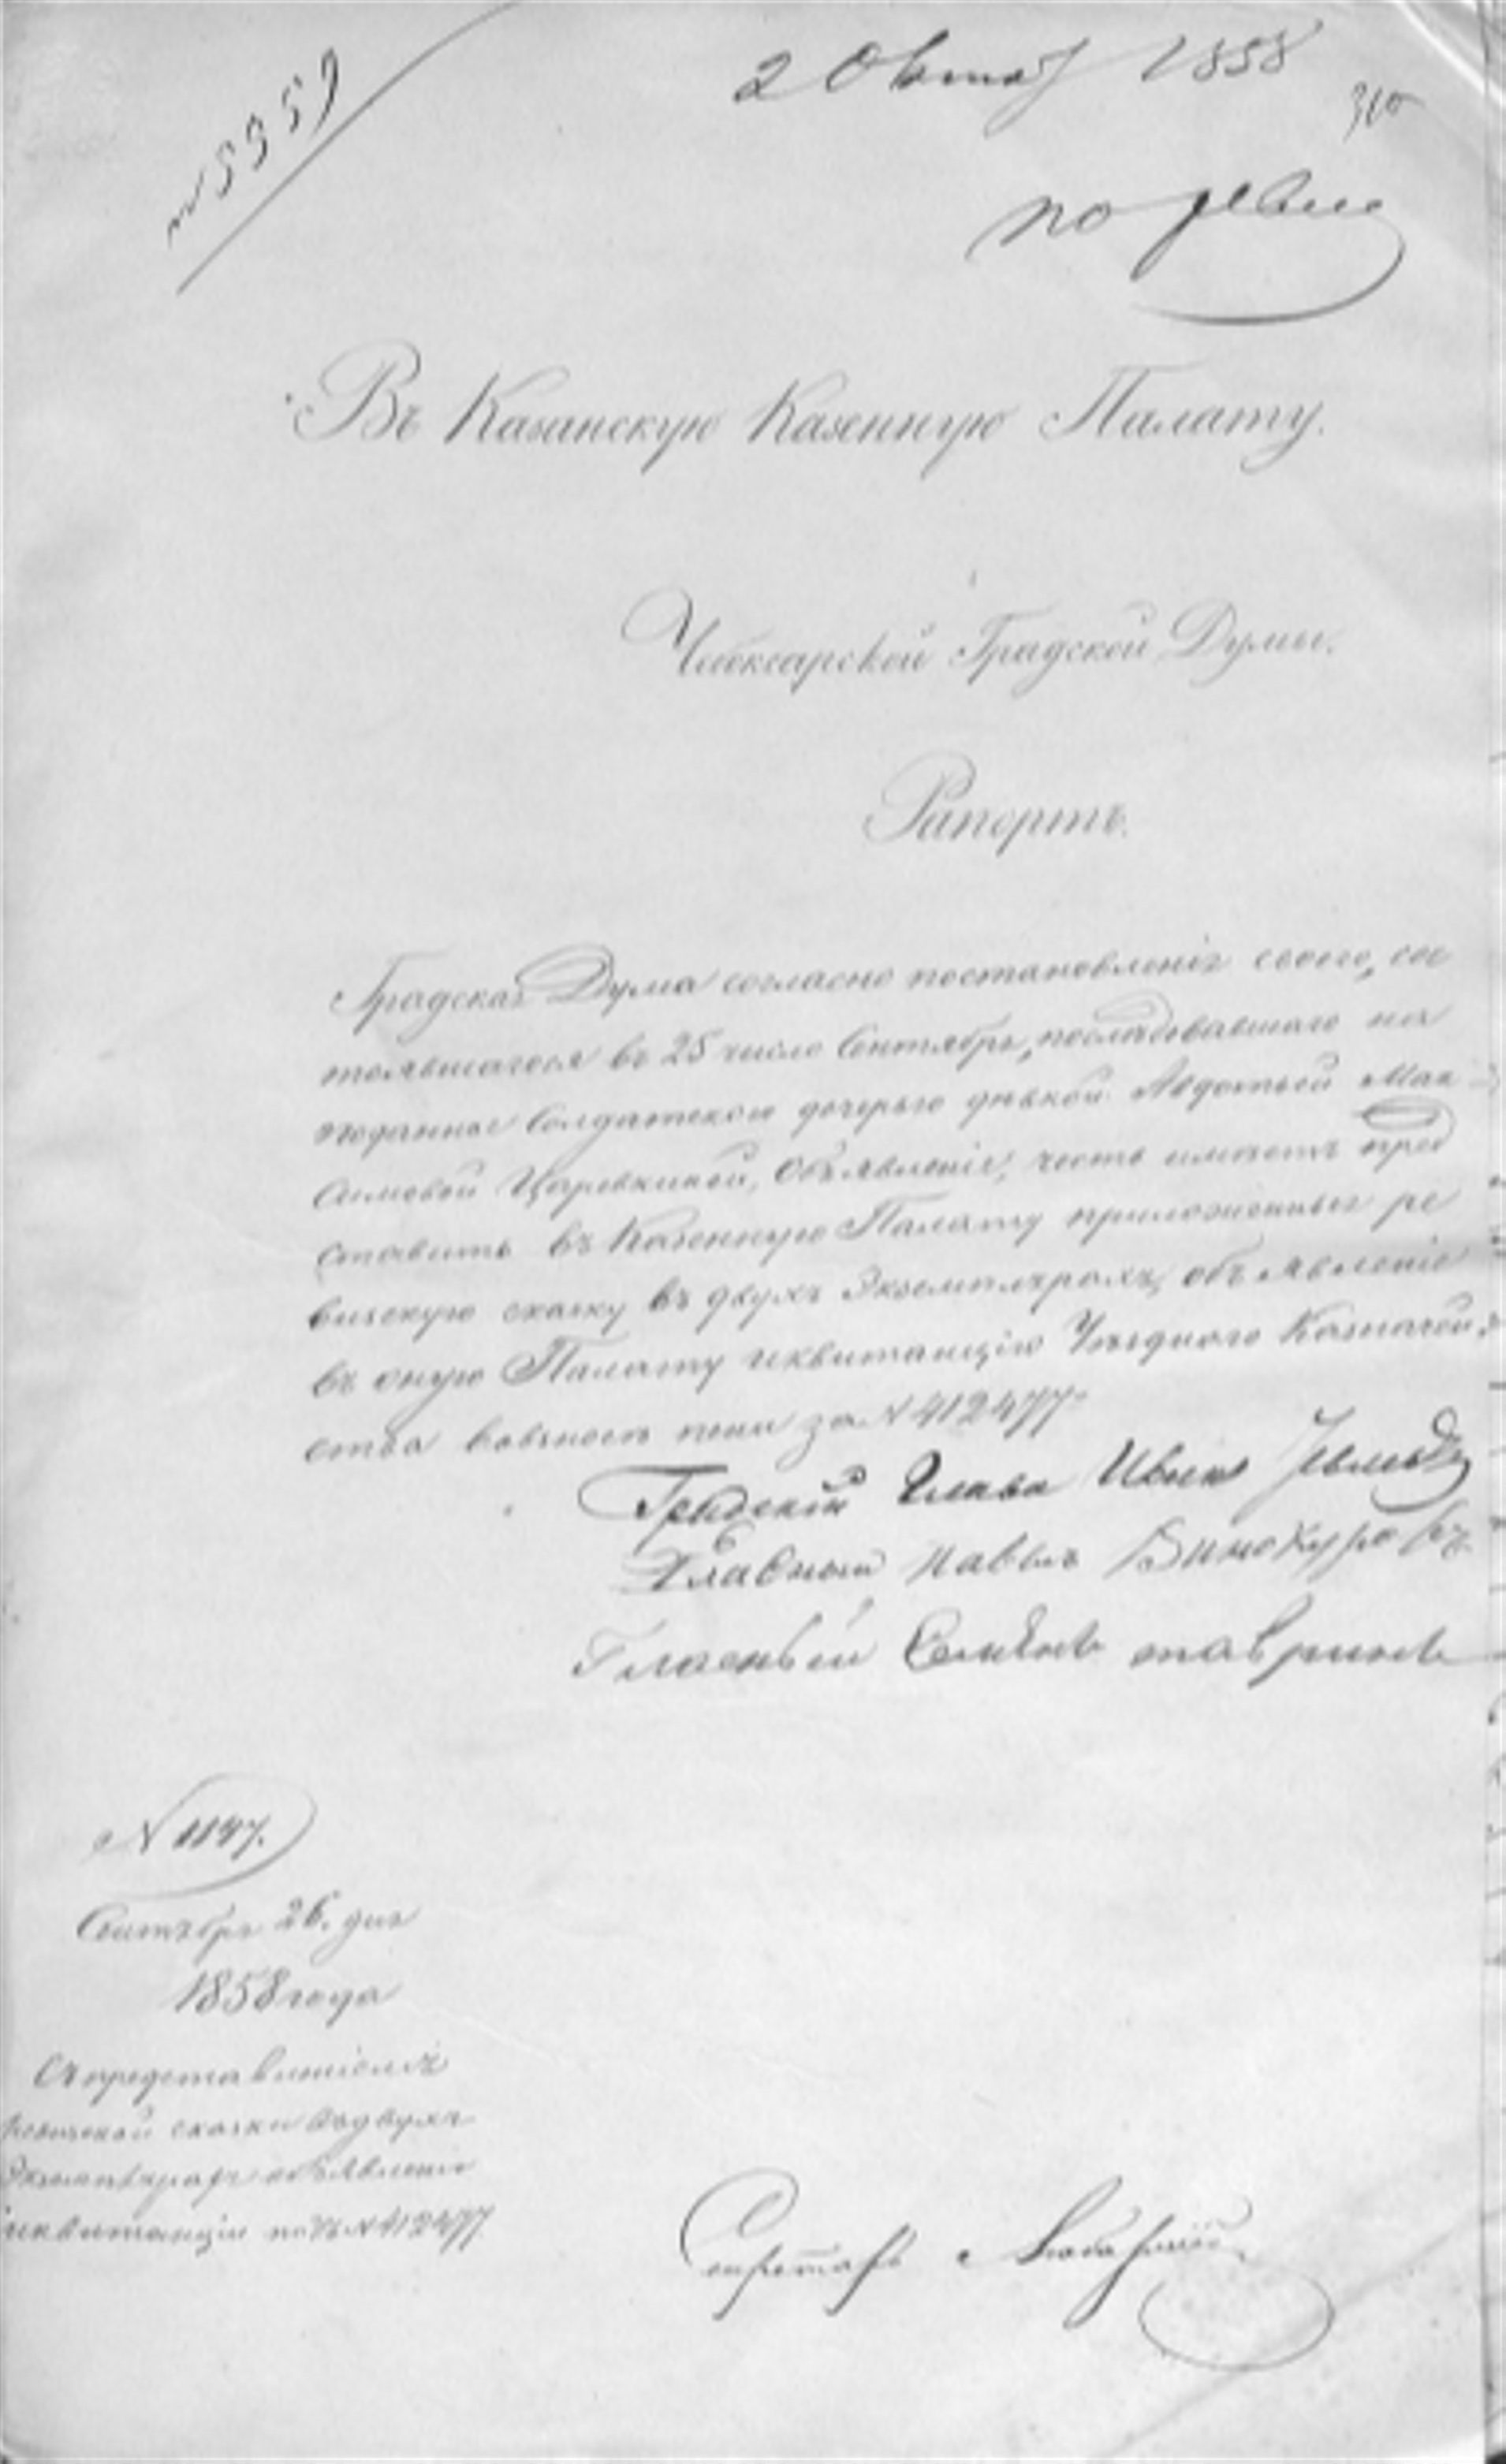 2 Октяб 1858
310
по ревиз
Въ Казанскую Казенную Палату.
Чебоксарской Градской Думы.
Рапортъ.
Градская Дума согласно постановленія своего, сос
тоявшагося въ 25 число Сентября, последовавшаго на
поданное Солдатскою дочерью девкой Авдотьей Мак
симовой Царевкиной, Объявленіе, честь имеетъ пред
ставить въ Казенную Палату приложенныя ре
визскую сказку въ двухъ Экземплярахъ, объявленіе
въ оную Палату и квитанцію Уезднаго Казначей
ства пени за № 412477
Градскій Глава Иванъ
Гласный Павелъ Винокуровъ
Гласный Семенъ тавринов
№ 1147.
Сентября 26. дня
1858 года
Съ представленіемъ
Ревизской сказки въ двухъ
Экземплярахъ объявленія
и квитанціи подъ № 412477
Секретарь